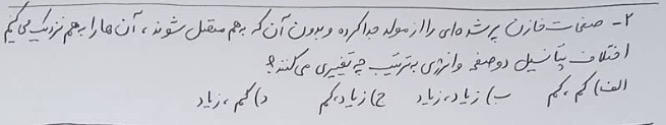 ۲- صفحات خازن پرشده‌ای را از مولد جدا کرده و بدون آن که به هم متصل شوند، آن ها را به هم نزدیک می کنیم
اختلاف پتانسیل دو صفحه و انرژی به ترتیب چه تغییری می کنند؟
الف) کم، کم ب) زیاد، زیاد ج) زیاد، کم د) کم، زیاد